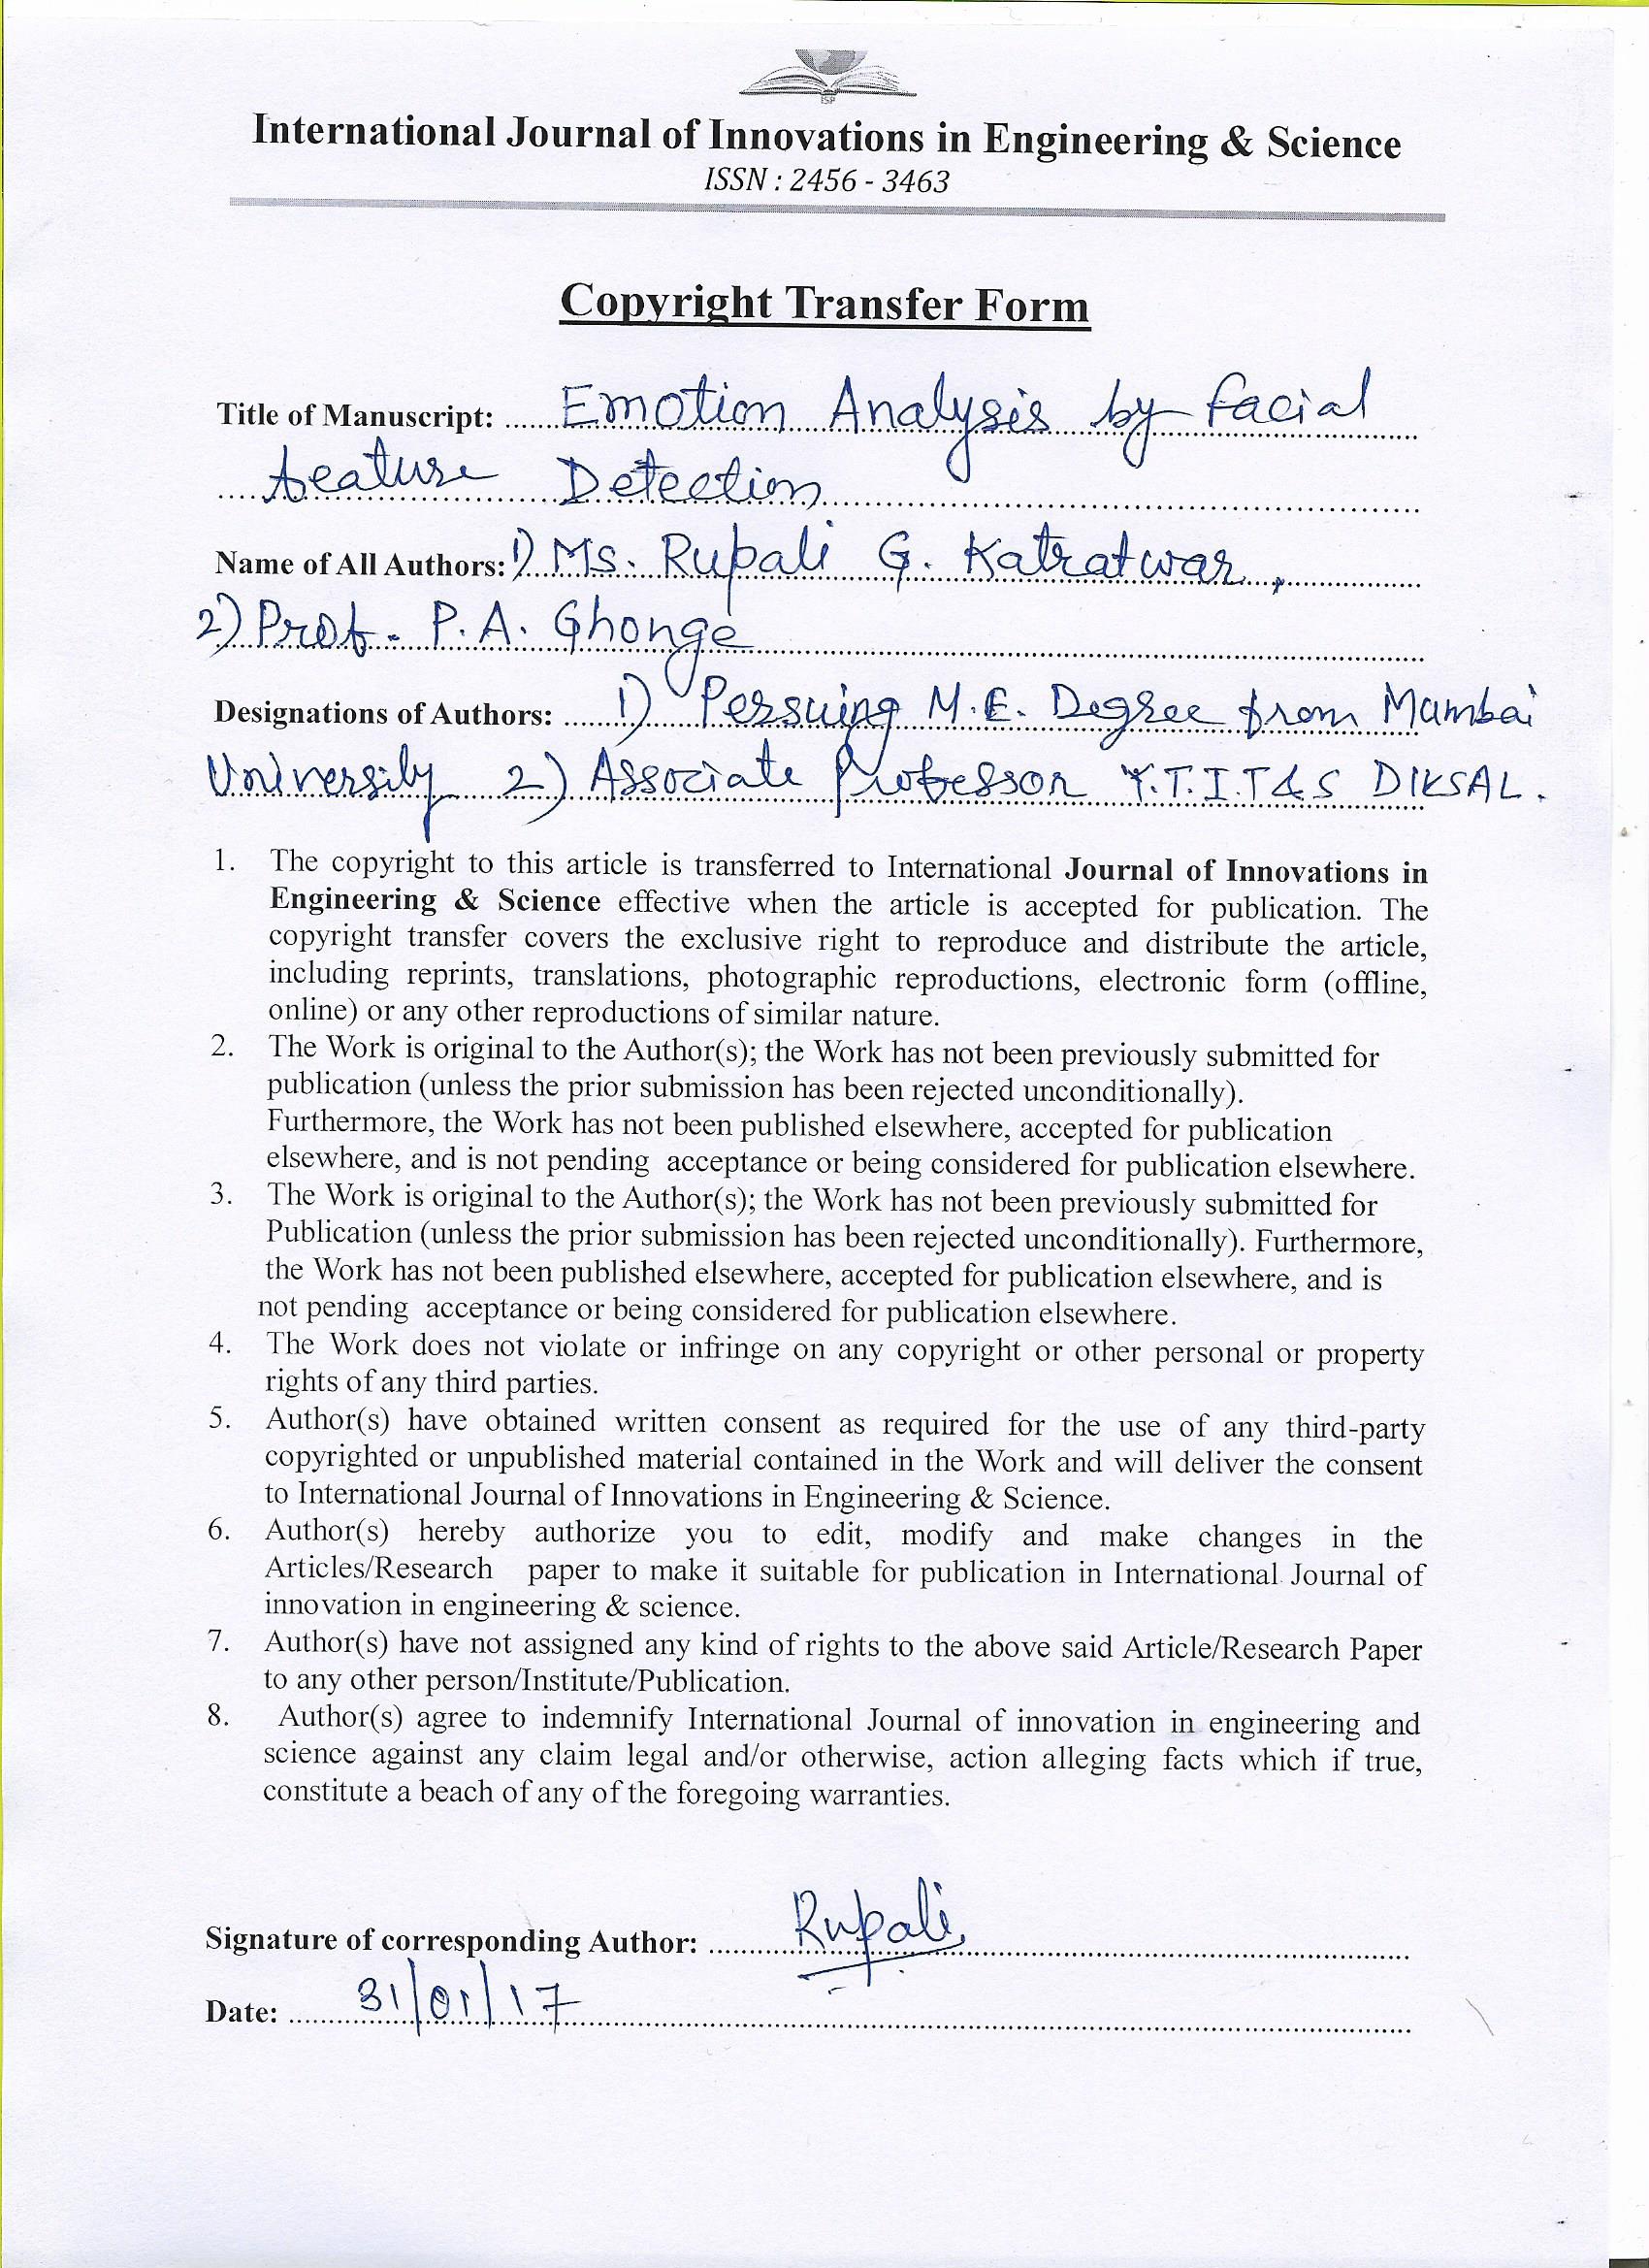 ISP
International Journal of Innovations in Engineering & Science
ISSN : 2456 - 3463
Copyright Transfer Form
Title of Manuscript: Emotion Analysis by facial
feature Detection
Name of All Authors: 1) Ms. Rupali G. Katratwar,
2) Prof. P.A. Ghonge
Designations of Authors: 1) Persuing M.E. Degree from Mumbai
University 2) Associate Professor Y.T.I.T&S DIKSAL.
1. The copyright to this article is transferred to International Journal of Innovations in
Engineering & Science effective when the article is accepted for publication. The
copyright transfer covers the exclusive right to reproduce and distribute the article,
including reprints, translations, photographic reproductions, electronic form (offline,
online) or any other reproductions of similar nature.
2. The Work is original to the Author(s); the Work has not been previously submitted for
publication (unless the prior submission has been rejected unconditionally).
Furthermore, the Work has not been published elsewhere, accepted for publication
elsewhere, and is not pending acceptance or being considered for publication elsewhere.
3. The Work is original to the Author(s); the Work has not been previously submitted for
Publication (unless the prior submission has been rejected unconditionally). Furthermore,
the Work has not been published elsewhere, accepted for publication elsewhere, and is
not pending acceptance or being considered for publication elsewhere.
4. The Work does not violate or infringe on any copyright or other personal or property
rights of any third parties.
5. Author(s) have obtained written consent as required for the use of any third-party
copyrighted or unpublished material contained in the Work and will deliver the consent
to International Journal of Innovations in Engineering & Science.
6. Author(s) hereby authorize you to edit, modify and make changes in the
Articles/Research paper to make it suitable for publication in International Journal of
innovation in engineering & science.
7. Author(s) have not assigned any kind of rights to the above said Article/Research Paper
to any other person/Institute/Publication.
8. Author(s) agree to indemnify International Journal of innovation in engineering and
science against any claim legal and/or otherwise, action alleging facts which if true,
constitute a beach of any of the foregoing warranties.
Signature of corresponding Author: Rupali
Date: 31/01/17